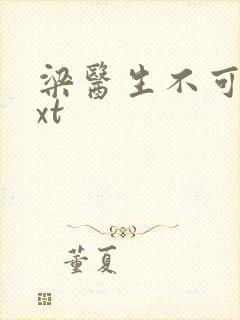 梁醫生不可
xt
董夏